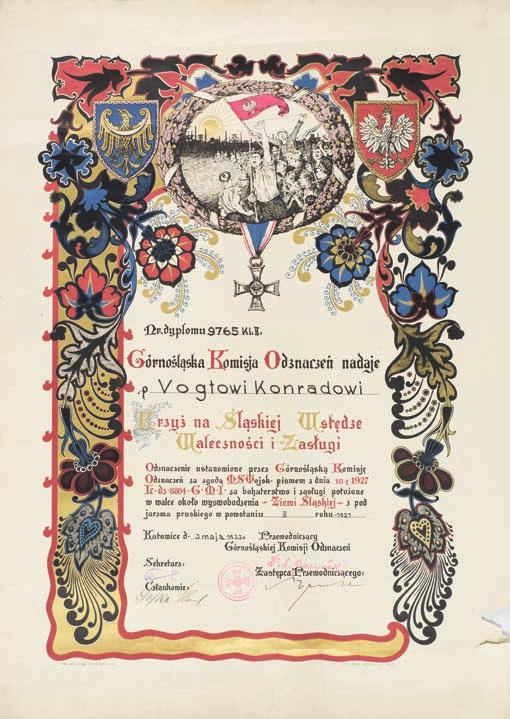 Nr. dyplomu 9765 kl. II.
Górnośląska Komisja Odznaczeń nadaje
p Vogtowi Konradowi
Krzyż na Śląskiej Wstędze
Waleczności i Zasługi
Odznaczenie ustanowione przez Górnośląską Komisję
Odznaczeń za zgodą M.S.Wojsk. pismem z dnia 10-I 1927
za bohaterstwo i zasługi położone
w walce około wyswobodzenia - Ziemi Śląskiej - z pod
jarzma pruskiego w powstaniu II roku 1921
Katowice d- 2 maja Przewodniczący
Górnośląskiej Komisji Odznaczeń
Sekretarz:
Zastępca Przewodniczącego:
Członkowie: